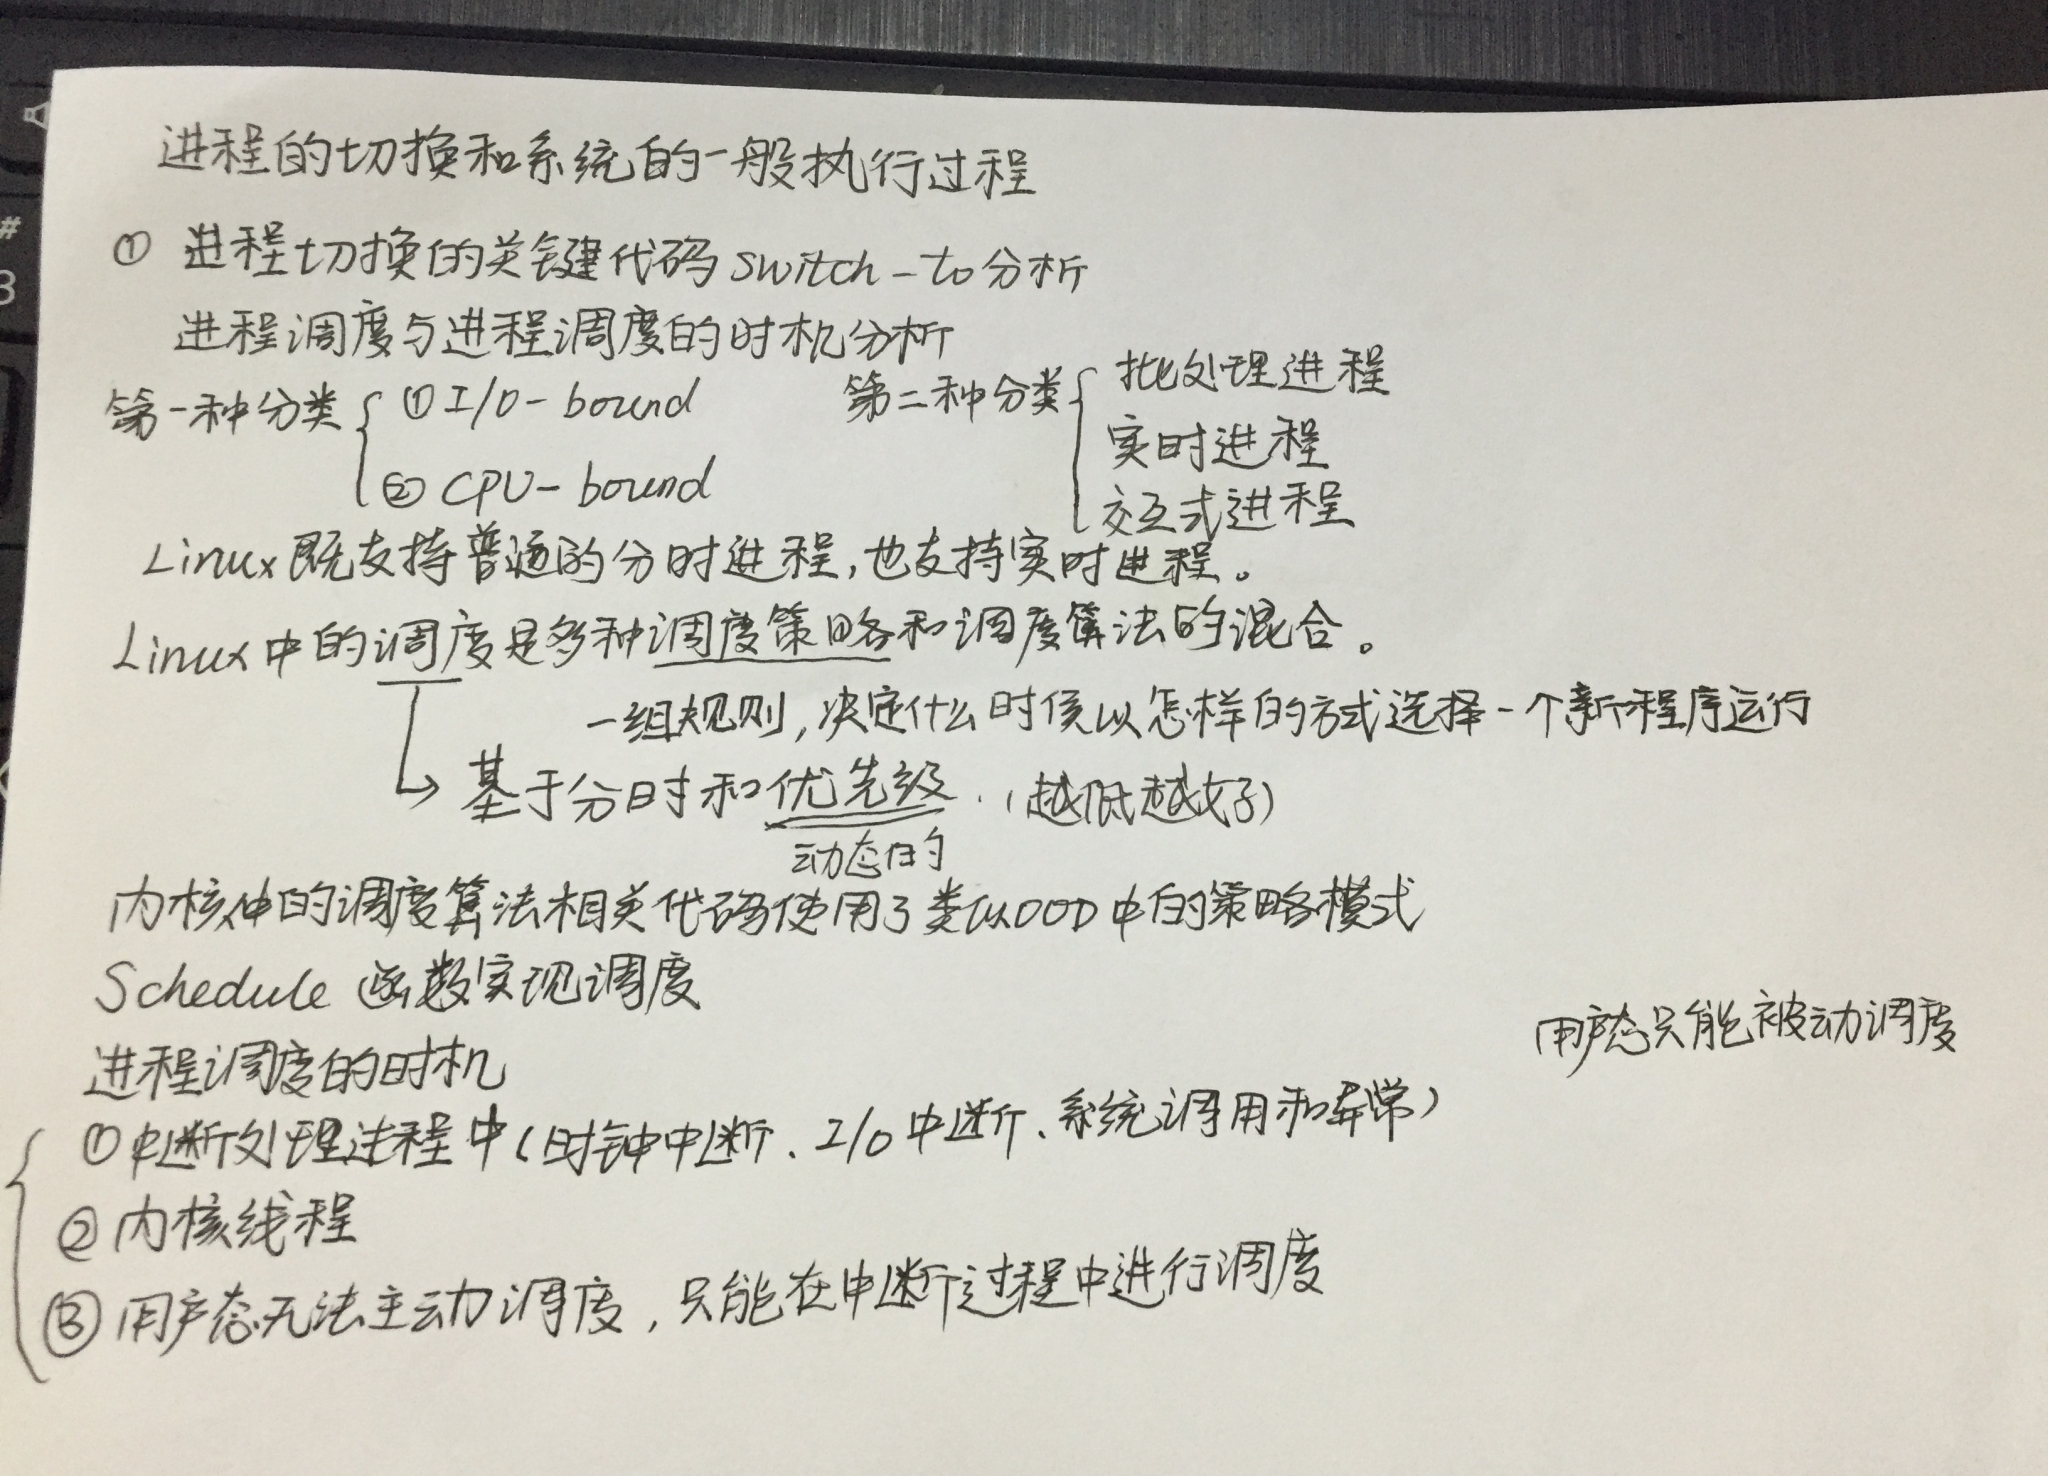 进程的切换和系统的一般执行过程
① 进程切换的关键代码switch-to分析
进程调度与进程调度的时机分析
第一种分类 ① I/O-bound
② CPU-bound
第二种分类 批处理进程
实时进程
交互式进程
Linux既支持普通的分时进程,也支持实时进程。
Linux中的调度是多种调度策略和调度算法的混合。
一组规则,决定什么时候以怎样的方式选择一个新程序运行
基于分时和优先级.(越低越好)
动态的
内核中的调度算法相关代码使用了类似OOD中的策略模式
Schedule函数实现调度
用户态只能被动调度
进程调度的时机
①中断处理过程中(时钟中断、I/O中断、系统调用和异常)
②内核线程
③用户态无法主动调度,只能在中断过程中进行调度
#
3